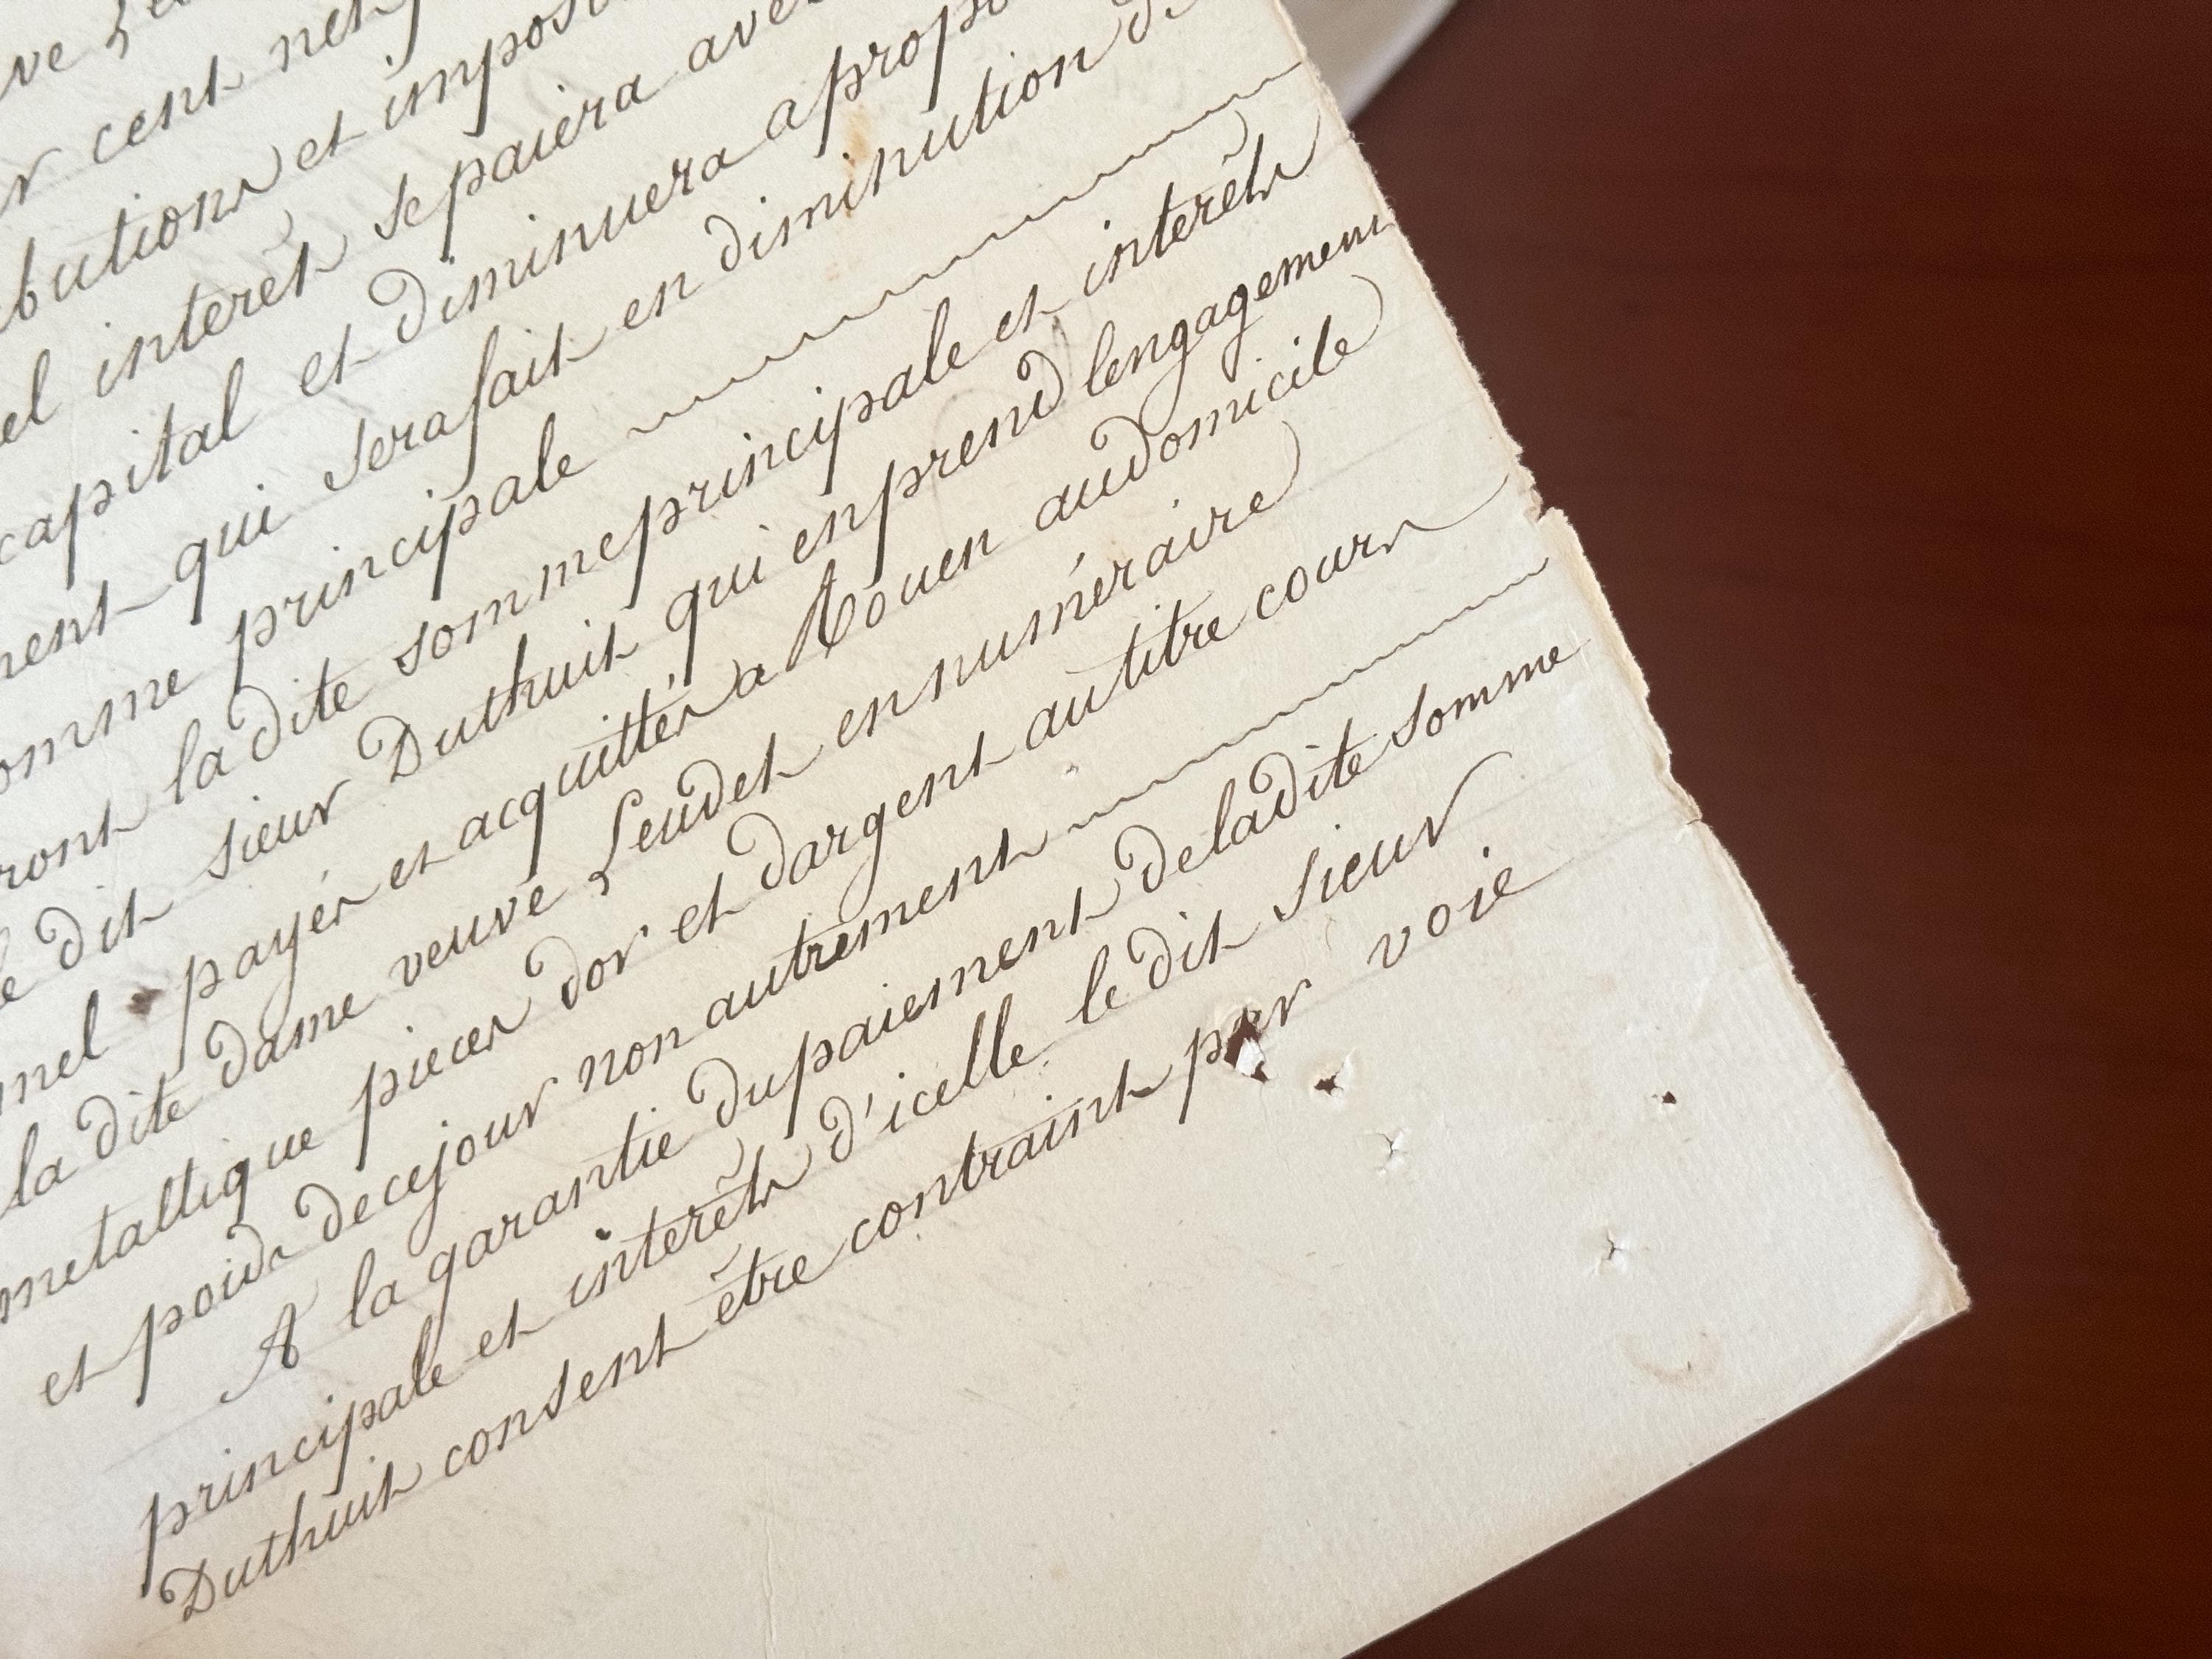 cent net
et impos
el interêt se paiera ave
capital et diminuera a propo
qui sera fait en diminution de
principale
la dite somme principale et interêts
dit sieur Duthuit qui en prend lengagement
payer et acquitter a Rouen au domicile
la dite dame veuve Leudet en numéraire
metallique pieces dor et dargent au titre cours
et poids de ce jour non autrement
A la garantie du paiement de la dite somme
principale et interêts d'icelle le dit sieur
Duthuit consent être contraint par voie